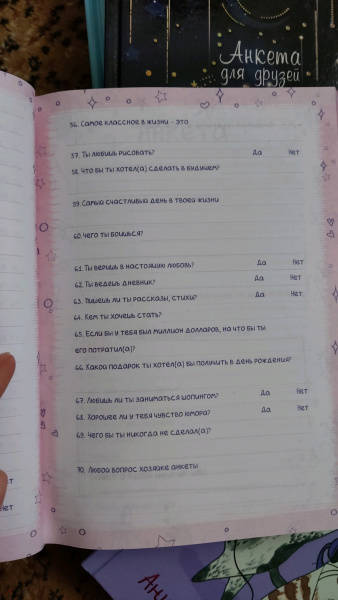 Анкета
для друзей
56. Самое классное в жизни - это
57. Ты любишь рисовать? Да Нет
58. Что бы ты хотел(а) сделать в будущем?
59. Самый счастливый день в твоей жизни
60. Чего ты боишься?
61. Ты веришь в настоящую любовь? Да Нет
62. Ты ведёшь дневник? Да Нет
63. Пишешь ли ты рассказы, стихи? Да Нет
64. Кем ты хочешь стать?
65. Если бы у тебя был миллион долларов, на что бы ты
его потратил(а)?
66. Какой подарок ты хотел(а) бы получить в день рождения?
67. Любишь ли ты заниматься шопингом? Да Нет
68. Хорошее ли у тебя чувство юмора? Да Нет
69. Чего бы ты никогда не сделал(а)?
70. Любой вопрос хозяйке анкеты
Нет